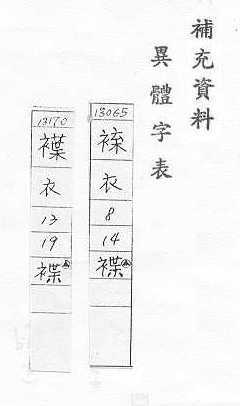 補充資料
異體字表
13065
衣
8
14
褋
13170
衣
13
19
褋